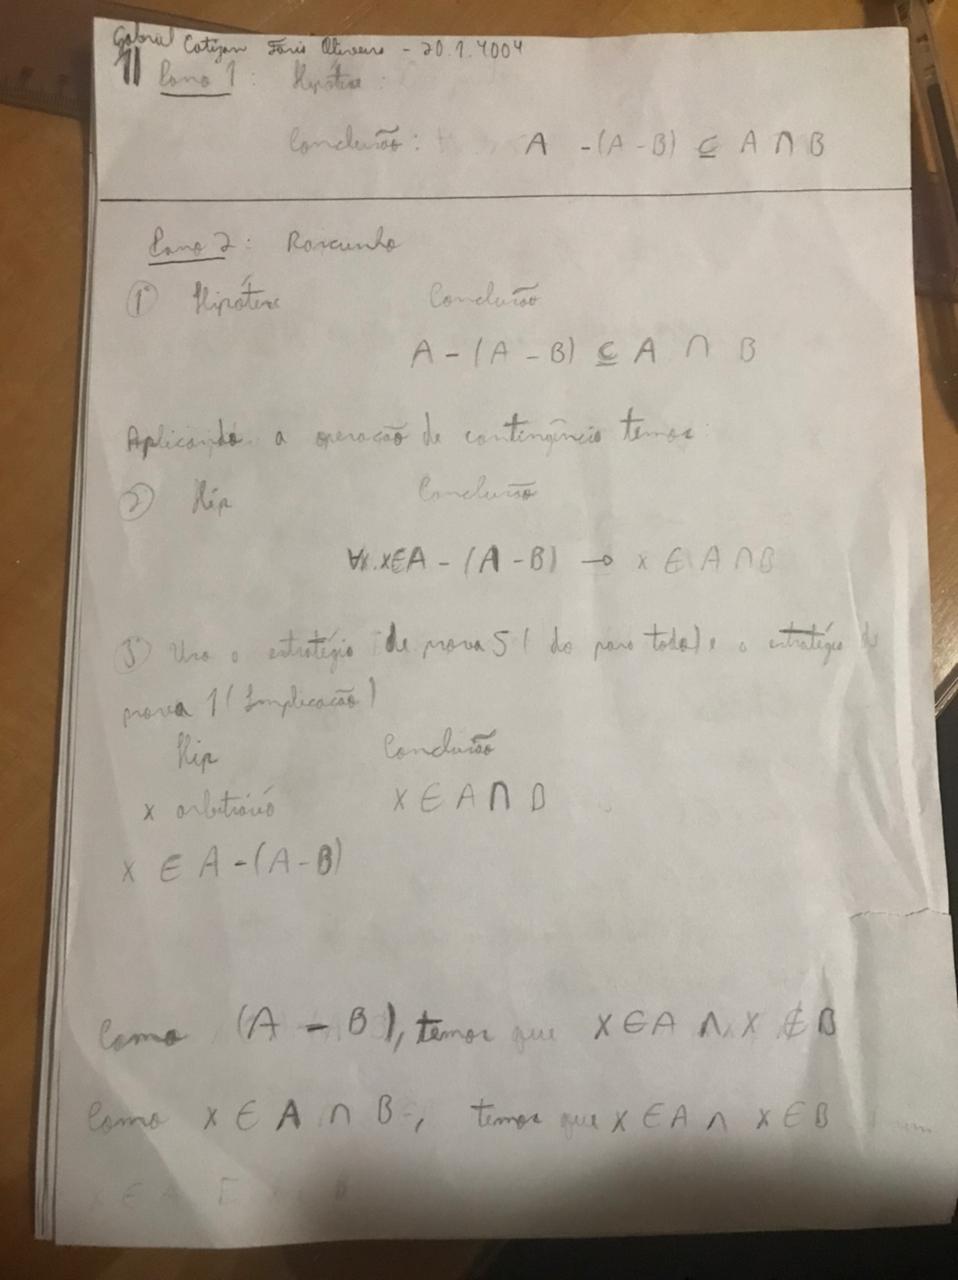 Gabriel Catizan Faris Oliveira - 20.1.4004
11 Passo 1: Hipótese:
Conclusão: A - (A - B) ⊆ A ∩ B
Passo 2: Rascunho
① Hipótese Conclusão
A - (A - B) ⊆ A ∩ B
Aplicando a operação de contingência temos:
② Hip Conclusão
∀x.x∈A - (A - B) → x ∈ A ∩ B
③ Uso a estratégia de prova 5 (do para todo) e a estratégia de
prova 1 (Implicação)
Hip Conclusão
x arbitrário x ∈ A ∩ B
x ∈ A - (A - B)
Como (A - B), temos que x ∈ A ∧ x ∉ B
Como x ∈ A ∩ B, temos que x ∈ A ∧ x ∈ B